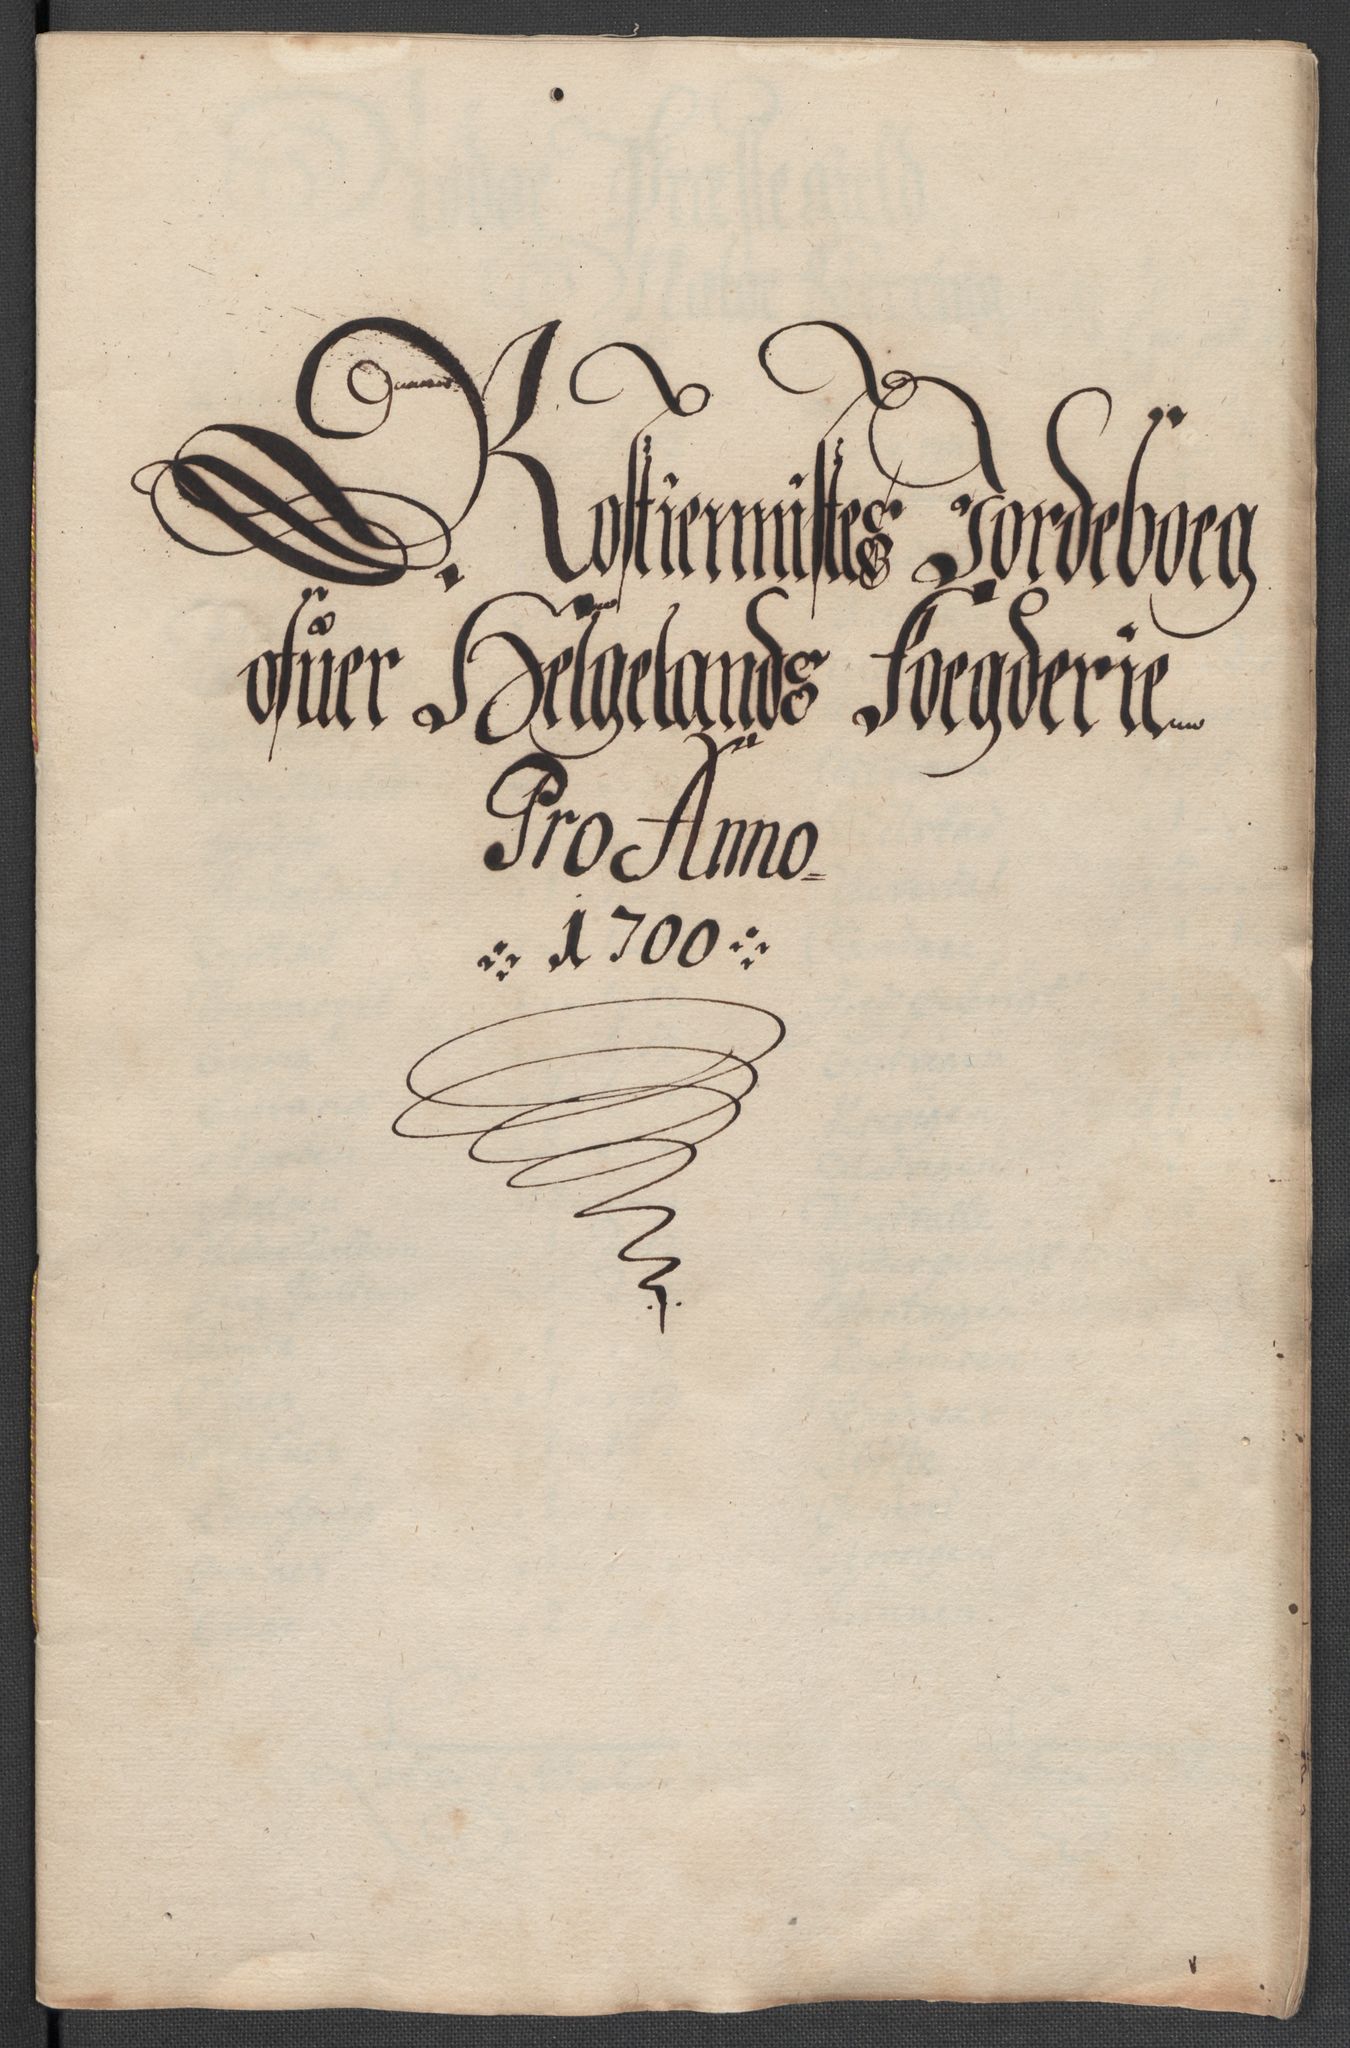 Rostiernistes Jordeboeg
ofuer Helgelands Foegderie
Pro Anno
1700